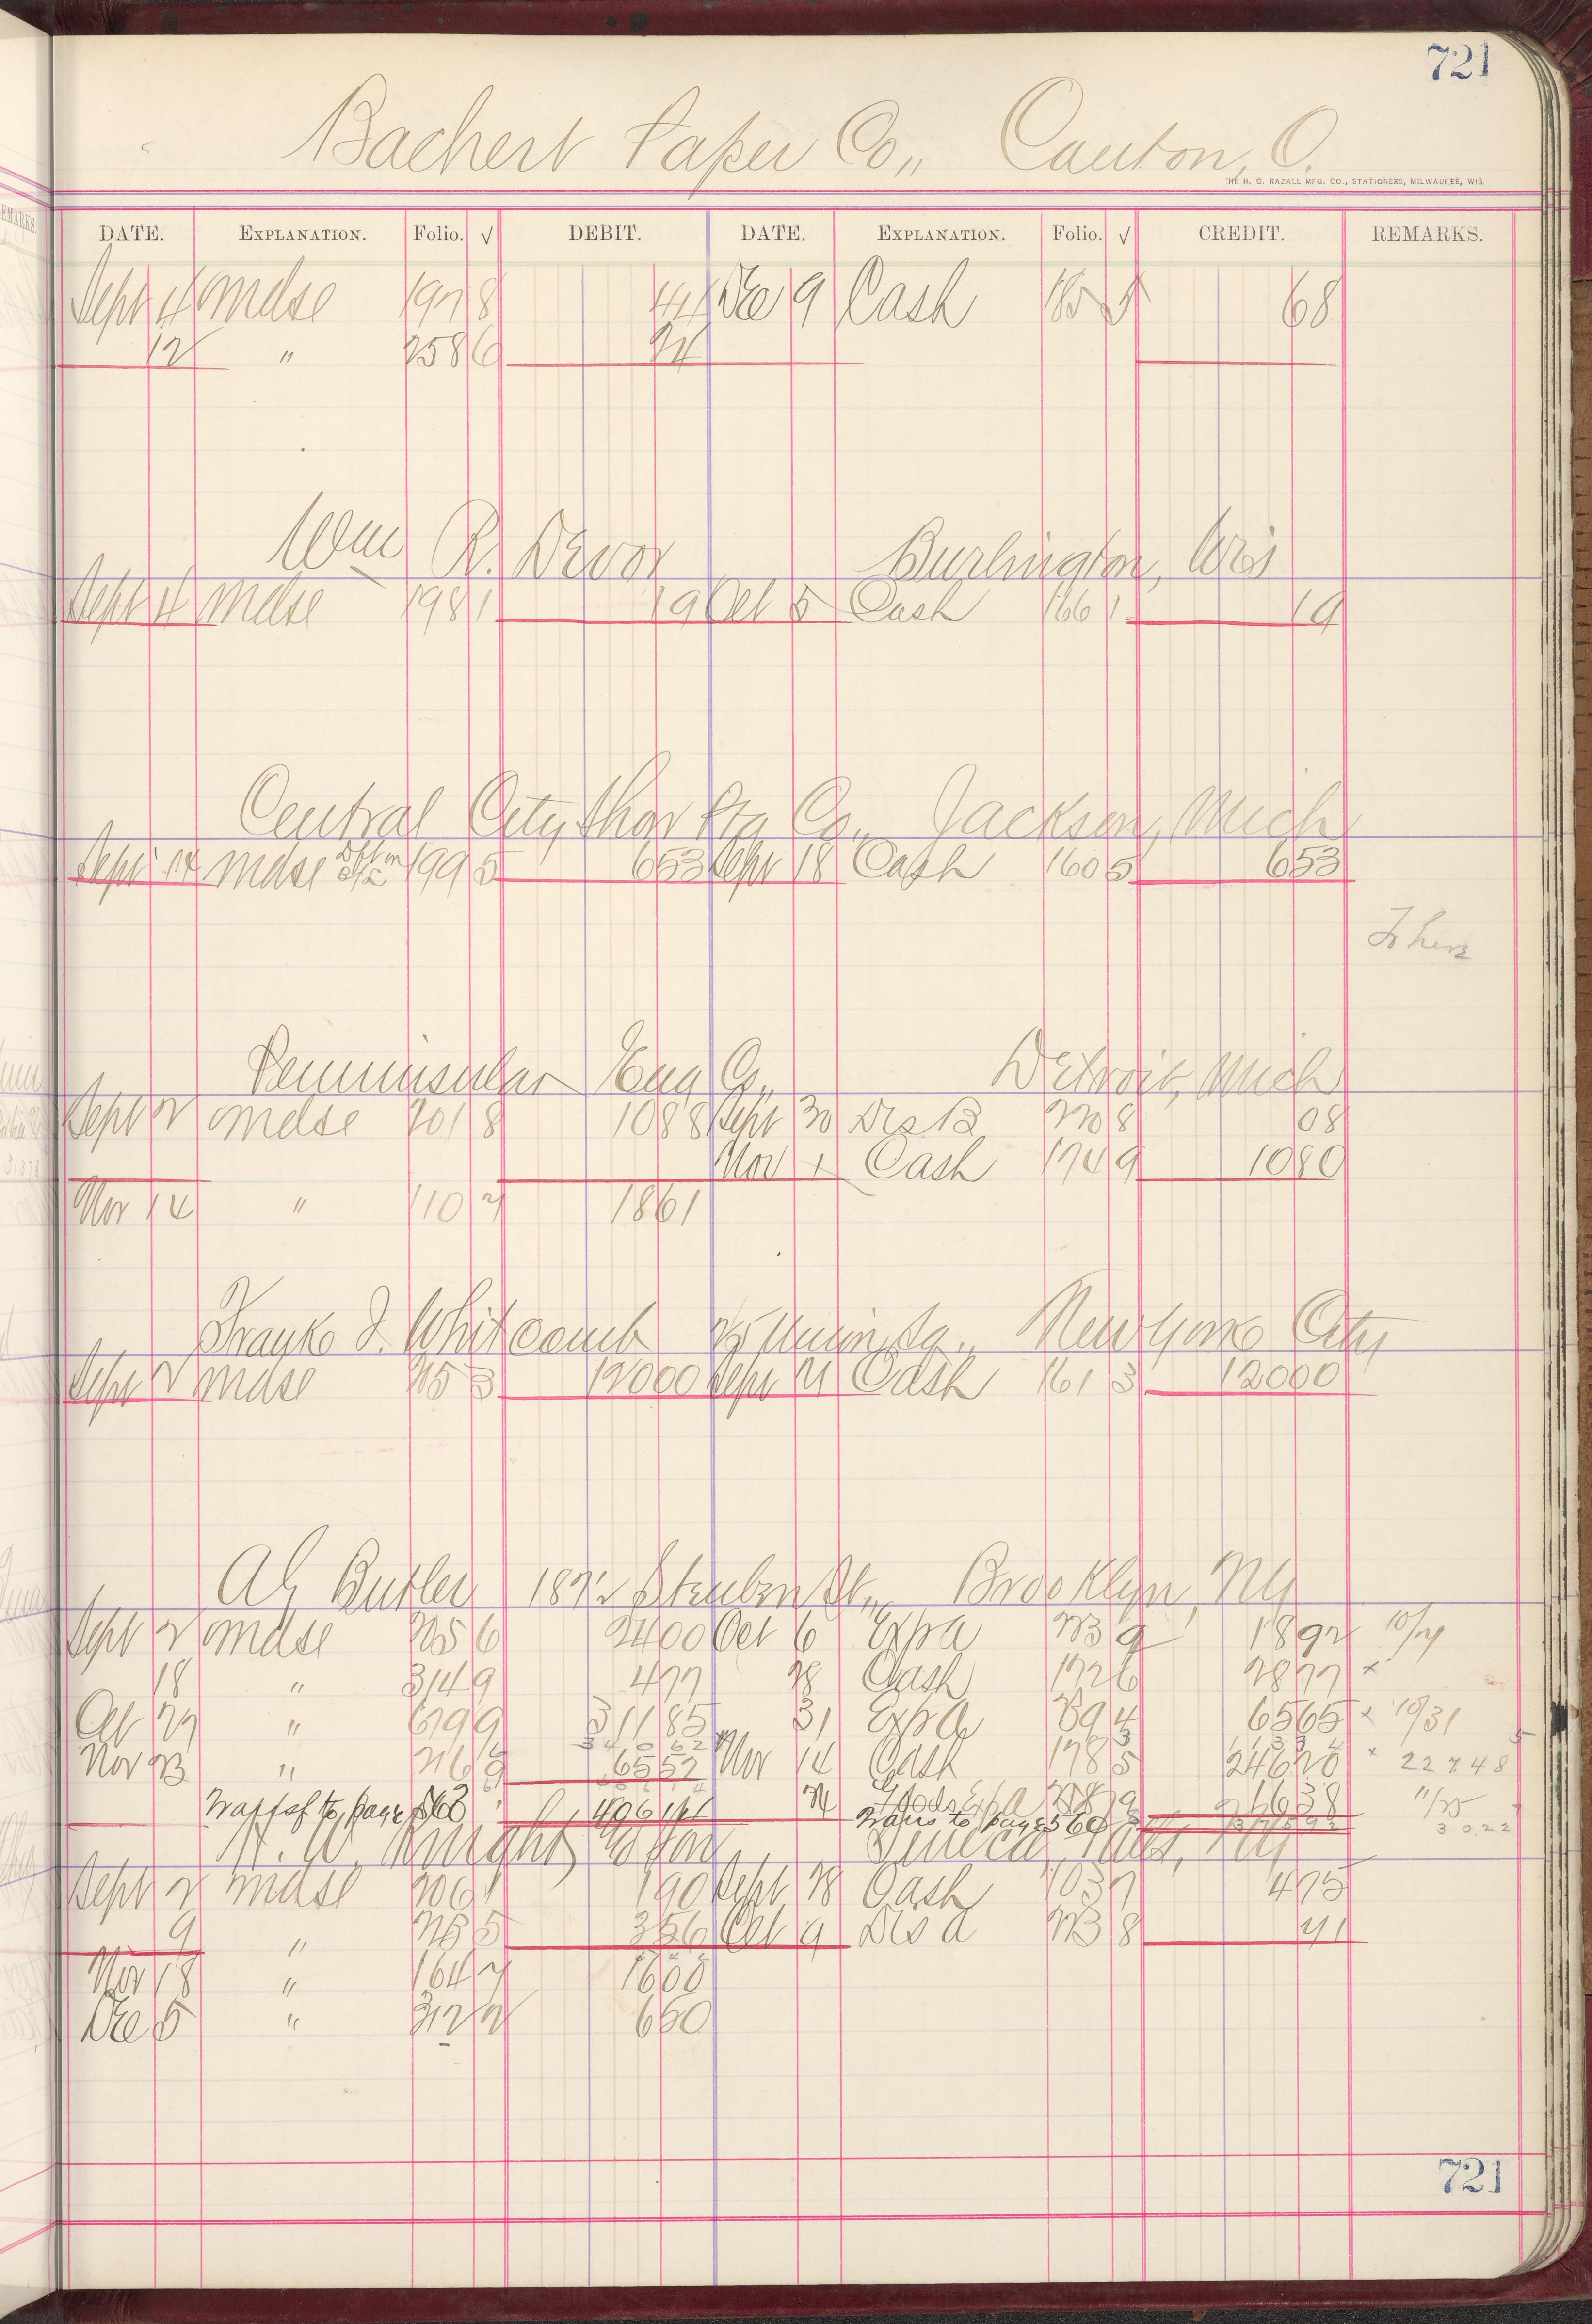 721
Bachert Paper Co., Canton, O.
THE H. G. RAZALL MFG. CO., STATIONERS, MILWAUKEE, WIS.
DATE. EXPLANATION. Folio. √ DEBIT. DATE. EXPLANATION. Folio. √ CREDIT. REMARKS.
Sept 4 Mdse 1978 44 Dec 9 Cash 68
12 " 2586 24
Wm R. Devor Burlington, Wis
Sept 4 Mdse 1981 19 Oct 5 Cash 1661 19
Central City Co., Jackson, Mich
Sept 14 Mdse 1995 653 Sept 18 Cash 1605 653
To here
Penninsular Eng Co., Detroit, Mich
Sept 2 Mdse 2018 1088 Sept 30 Dis B 2208 08
Nov 1 Cash 1749 1080
Nov 14 " 1107 1861
Frank J. Whitcomb Union Sq., New York City
Sept 2 Mdse 2153 12000 Sept 21 Cash 1613 12000
A G Butler 187½ Steuben St., Brooklyn, NY
Sept 2 Mdse 2156 2400 Oct 6 Exp a 2239 1892 10/21
18 " 3149 477 28 Cash 1726 2877 x
Oct 27 " 6799 31185 31 Exp a 6565 x 10/31
34062
Nov 23 " 6552 Nov 14 Cash 1785 24620 x 22748
Transf to page 560 Trans to page 560 11/25
3022
Knight & Son, Seneca Falls, NY
Sept 2 Mdse 2061 190 Sept 28 Cash 1037 475
9 " 356 Oct 9 Dis a 2238 71
Nov 18 " 1647 1600
Dec 5 " 3122 650
721